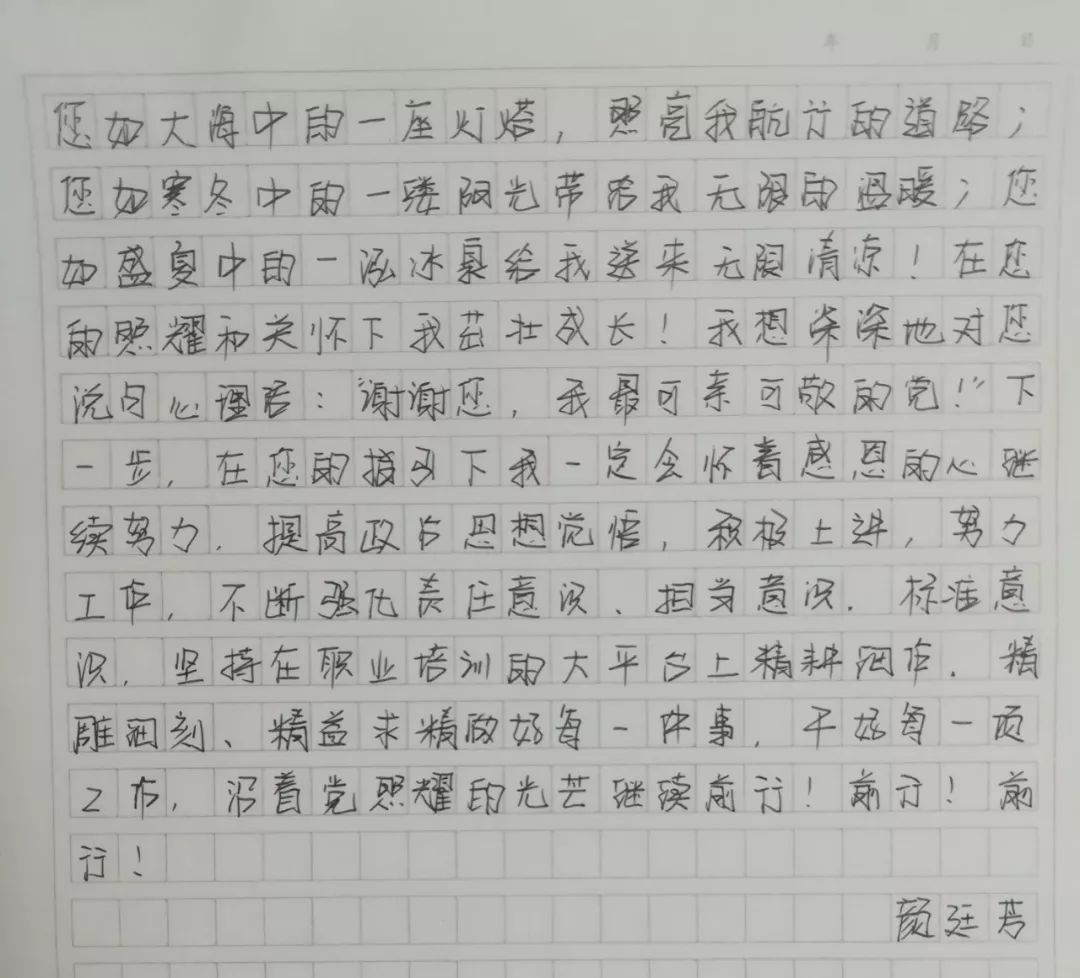 年 月 日
您如大海中的一座灯塔，照亮我航行的道路；
您如寒冬中的一缕阳光带给我无限的温暖；您
如盛夏中的一泓冰泉给我送来无限清凉！在您
的照耀和关怀下我茁壮成长！我想深深地对您
说句心理话："谢谢您，我最可亲可敬的党！"下
一步，在您的指引下我一定会怀着感恩的心继
续努力，提高政治思想觉悟，积极上进，努力
工作，不断强化责任意识、担当意识、标准意
识，坚持在职业培训的大平台上精耕细作、精
雕细刻、精益求精做好每一件事，干好每一项
工作，沿着党照耀的光芒继续前行！前行！前
行！
颜廷芳